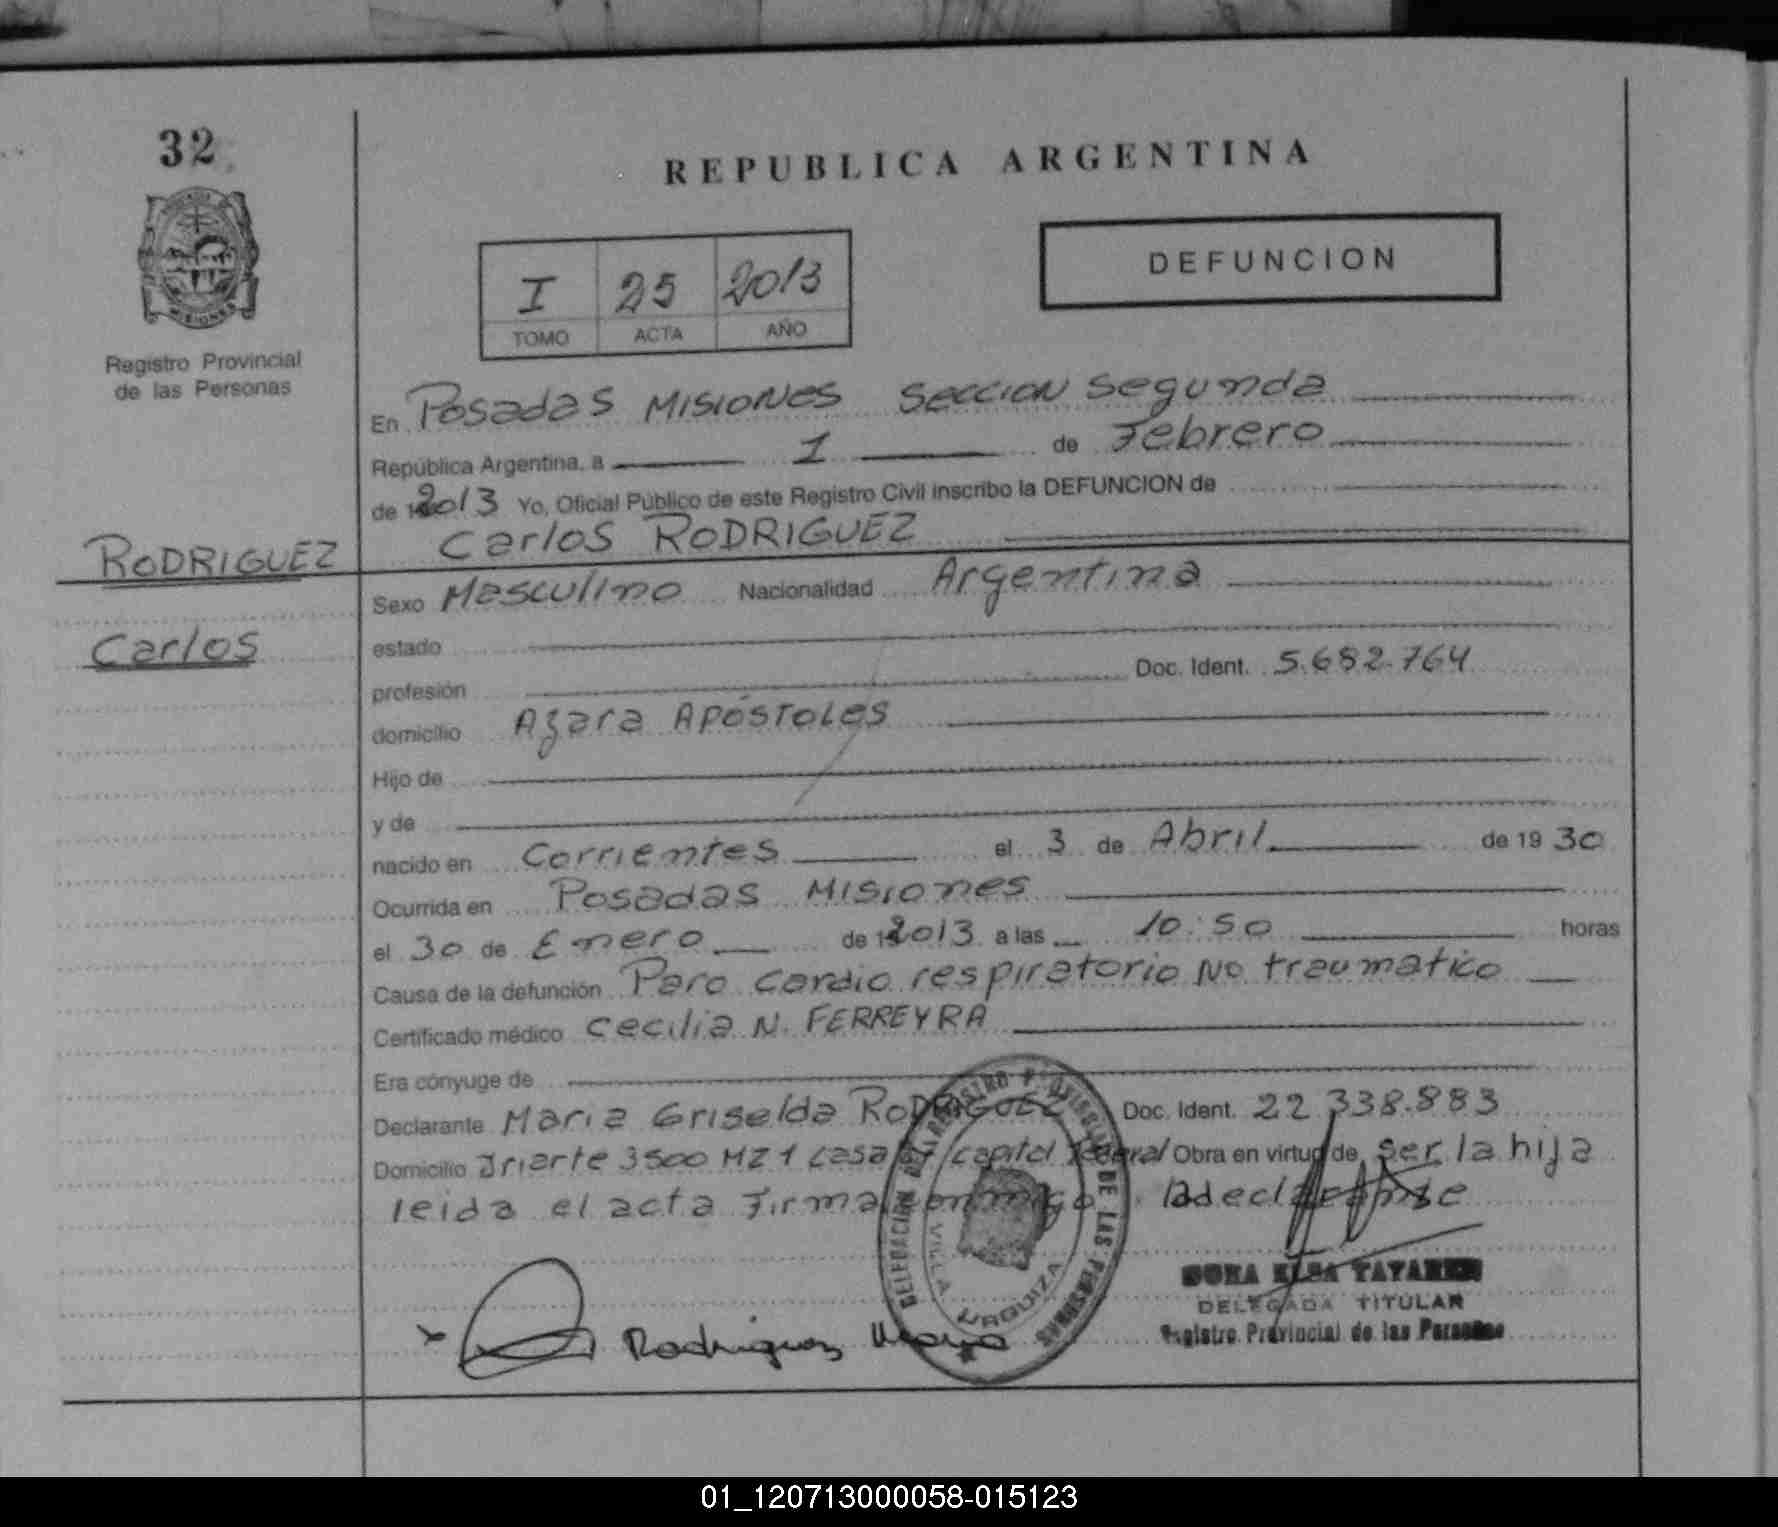 32
REPUBLICA ARGENTINA
MISIONES
Registro Provincial
de las Personas
I 25 2013
TOMO ACTA AÑO
DEFUNCION
En Posadas Misiones Seccion Segunda
República Argentina, a 1 de Febrero
de 2013 Yo, Oficial Público de este Registro Civil inscribo la DEFUNCION de
Carlos RODRIGUEZ
RODRIGUEZ
Carlos
Sexo Masculino Nacionalidad Argentina
estado
profesión Doc. Ident. 5.682.764
domicilio Azara Apóstoles
Hijo de
y de
nacido en Corrientes el 3 de Abril de 1930
Ocurrida en Posadas Misiones
el 30 de Enero de 2013 a las 10:50 horas
Causa de la defunción Paro cardio respiratorio No traumatico
Certificado médico Cecilia N. FERREYRA
Era cónyuge de
Declarante Maria Griselda RODRIGUEZ Doc. Ident. 22.338.883
Domicilio Iriarte 3500 MZ 1 casa capital federal Obra en virtud de ser la hija
leida el acta Firma conmigo la declarante
DELEGACION DEL REGISTRO PROVINCIAL DE LAS PERSONAS
VILLA URQUIZA
DELEGADA TITULAR
Registro Provincial de las Personas
x Rodriguez
01_120713000058-015123